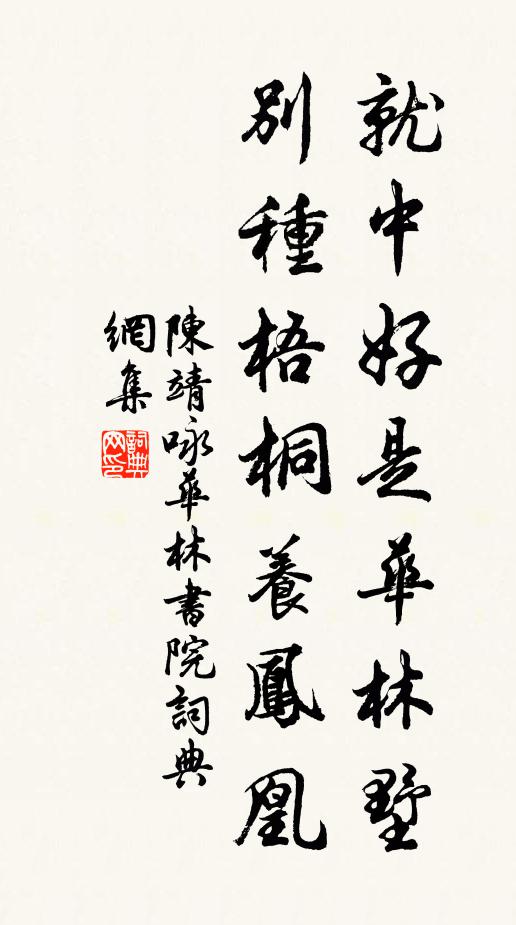 就中好是華林墅
別種梧桐養鳳凰
陳靖咏華林書院詞典
網集
詞典
网印